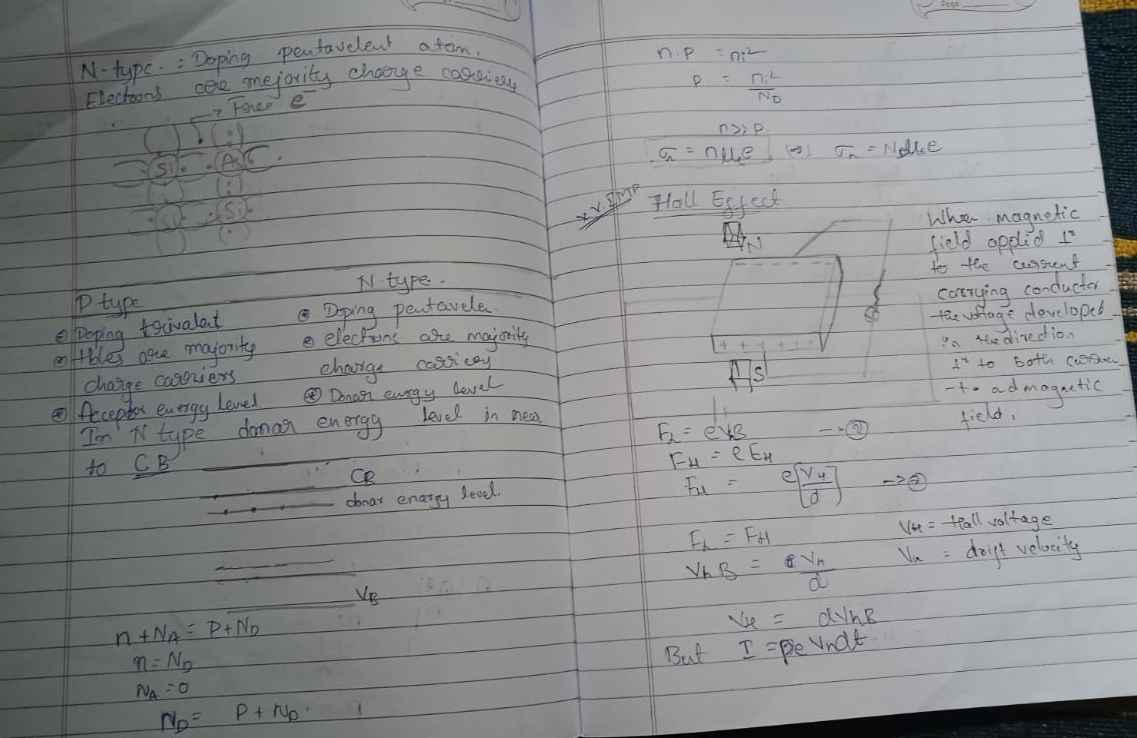 N-type : Doping pentavelent atom.
Electrons are mejority charge carriers
→ Free e⁻
Si As
Si Si
P type
N-type.
Doping trivalat
Holes are majority
charge carriers
Acceptor energy level
Doping pentavele
electrons are majority
charge carriey
Donar eurgy level
In N type donar energy level in nea
to CB
CB
donar enargy level.
VB
n + NA = P + ND
n = ND
NA = 0
ND = P + ND
n.p = ni²
P = ni²/ND
n>>p
σn = nμe e , σn = NDμe e
V.IMP
Hall Effect
N
+ + + +
S
When magnetic
field applid ⊥r
to the current
carrying conductor
the voltage developed
in the direction
⊥r to both curren
-t ad magnetic
field.
FL = eVhB →
FH = eEH
FH = e[VH/d] → ②
FL = FH
VhB = eVH/d
VH = Hall voltage
Vn = drift velocity
VH = dVhB
But I = peVndt